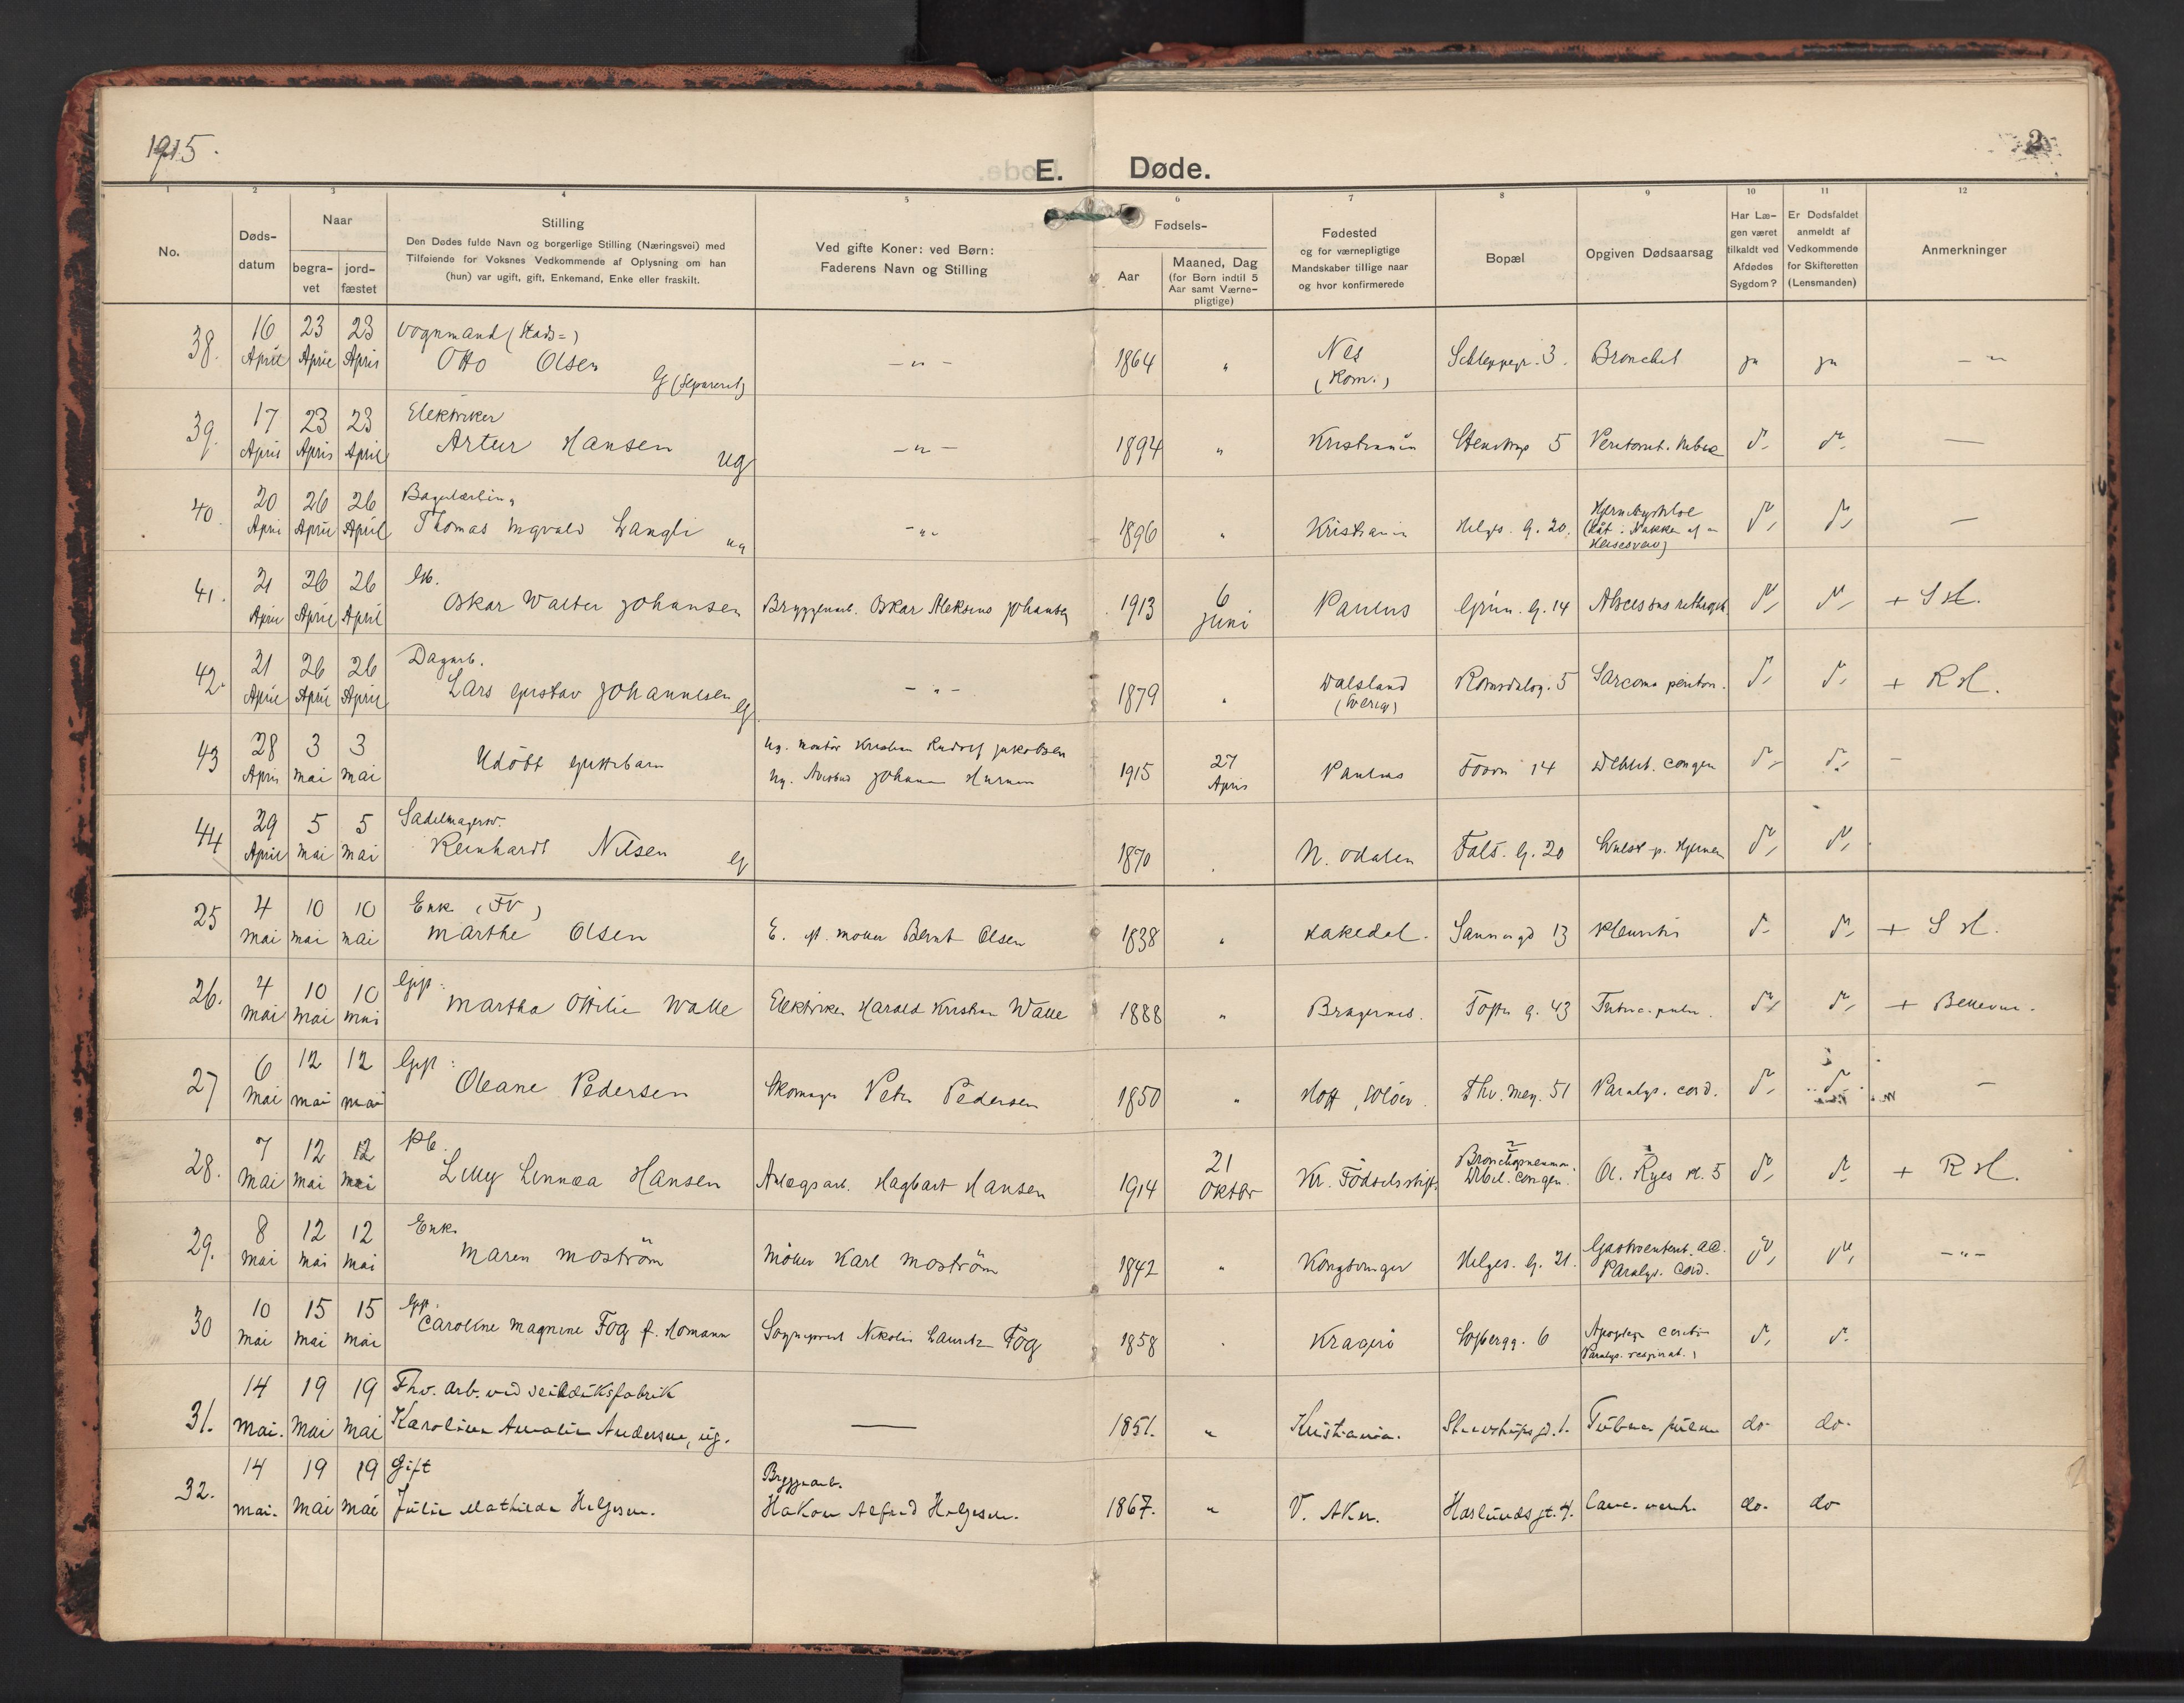 1915.
2
E. Døde.
1 2 3 4 5 6 7 8 9 10 11 12
No.
Døds-
datum
Naar
begra-
vet
jord-
fæstet
Stilling
Den Dødes fulde Navn og borgerlige Stilling (Næringsvei) med
Tilføiende for Voksnes Vedkommende af Oplysning om han
(hun) var ugift, gift, Enkemand, Enke eller fraskilt.
Ved gifte Koner: ved Børn:
Faderens Navn og Stilling
Fødsels-
Aar
Maaned, Dag
(for Børn indtil 5
Aar samt Værne-
pligtige)
Fødested
og for værnepligtige
Mandskaber tillige naar
og hvor konfirmerede
Bopæl
Opgiven Dødsaarsag
Har Læ-
gen været
tilkaldt ved
Afdødes
Sygdom?
Er Dødsfaldet
anmeldt af
Vedkommende
for Skifteretten
(Lensmanden)
Anmerkninger
38. 16 23 23 Vognmand (Stads=)
April April April Otto Olsen G (separeret) — " — 1864 " Nes (Rom.) Schleppegr. 3. Bronchit ja ja — "
39. 17 23 23 Elektriker
April April April Artur Hansen ug — " — 1894 " Kristiania 5 d. d. —
40. 20 26 26
April April April Thomas Ingvald Langli ug — " — 1896 " Kristiania Helges. g. 20. d. d. —
41. 21 26 26
April April April Oskar Walter Johansen Bryggeriarb. Oskar Johansen 1913 6 Juni Paulus Grün. g. 14 Abscessus d. d. + S H.
42. 21 26 26 Dagarb.
April April April Lars Gustav Johannesen G — " — 1879 " Dalsland Romsdalsg. 5 Sarcoma periton. d. d. + R H.
43 28 3 3 Ug. Montör Kristian Rudolf Jakobsen
April Mai Mai Udöbt Guttebarn Ug. Johanne 1915 27 April Paulus 14 Debilit. congen d. d. —
44 29 5 5 Sadelmagersv.
April Mai Mai Reinhardt Nilsen G 1870 . N. Odalen Fals. g. 20 d. d.
25 4 10 10 Enk (FV)
Mai Mai Mai Marthe Olsen E. ft. Møller Bernt Olsen 1838 " Hakedal. 13 Pleuritis d. d. + S H.
26. 4 10 10 Gift:
Mai Mai Mai Martha Ottilie Walle Elektriker Harald Kristian Walle 1888 " Bragernes. Tofte g. 43 Tuberc. pulm. d. d. + Bellevue.
27 6 12 12 Gift:
Mai Mai Mai Oleane Pedersen Skomager Peter Pedersen 1850 " Hoff, Solöer. Thv. Mey. 51 Paralys. cord. d. d. —
28. 7 12 12 Pb.
Mai Mai Mai Lilly Linnea Hansen Anlægsarb. Hagbart Hansen 1914 21 Oktbr Kr. Födselsstift. Bronchopneumon. Debil. congen. Ol. Ryes pl. 5 d. d. + R H.
29. 8 12 12 Enk.
Mai Mai Mai Maren Moström Möller Karl Moström 1842 " Kongsvinger Helges. g. 21. Gastroenterit. ac. Paralys. cord. d. d. — " —
30 10 15 15 Gift.
Mai Mai Mai Caroline Magnine Fog f. Homann Sogneprest Nikolai Lauritz Fog 1858 . Kragerö 6 Apoplexia cerebri (Paralys. respirat.) d. d.
31. 14 19 19 Thv. arb. ved seildüksfabrik
Mai. Mai Mai Karoline Amalie Andersen, üg. — 1851. " Kristiania. 1. Tüberc. pülm do. do.
32. 14 19 19 Gift Bryggeriarb.
Mai. Mai Mai Jülie Mathilde Helgesen. Hakon Alfred Helgesen. 1867. " V. Aker. Haslunds gt. 4. Canc. ventr. do. do